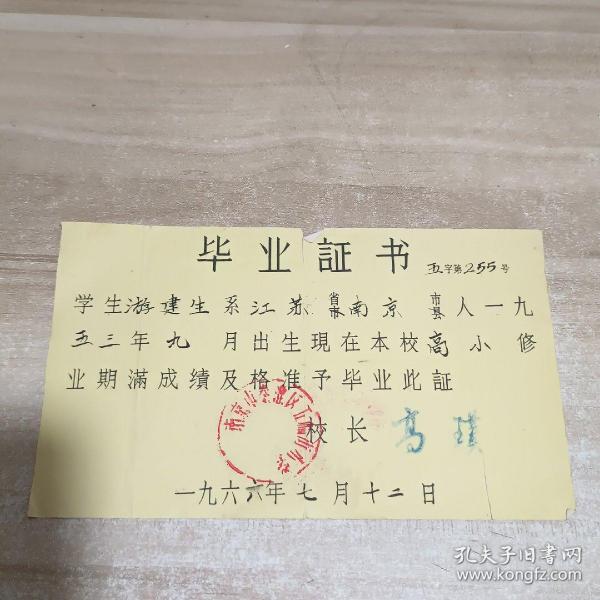 毕业証书
五字第255号
学生游建生系江苏省市南京市县人一九
五三年九月出生現在本校高小修
业期滿成績及格准予毕业此証
校长 高
一九六六年七月十二日
孔夫子旧书网
www.kongfz.com